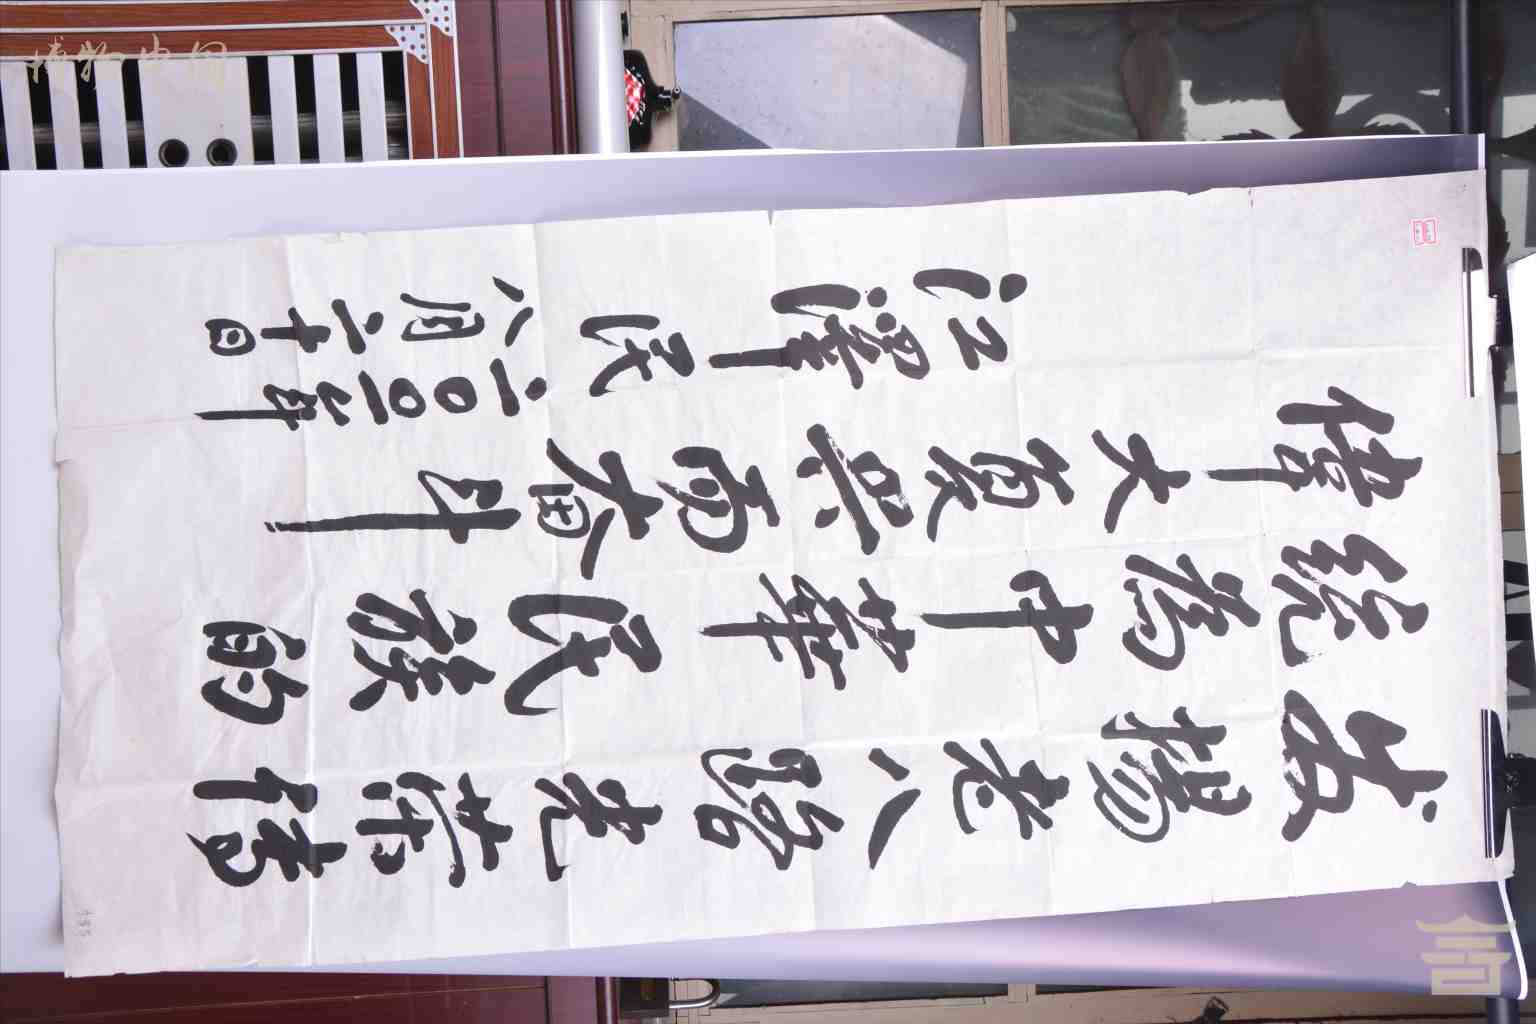 发揚老八路光荣传
统为中華民族的
偉大复兴而奋斗
江澤民
二〇〇一年
八月二十日
博物中国